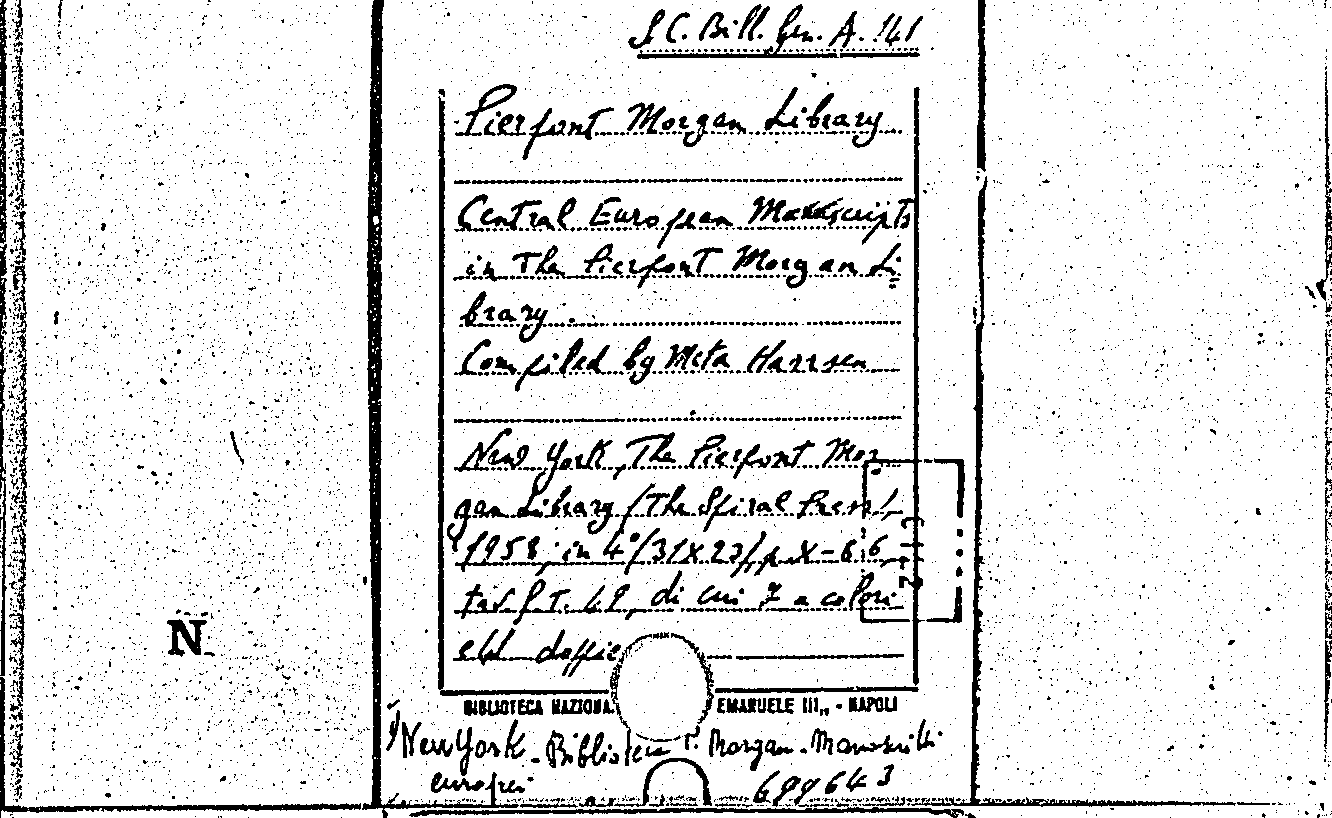 S C. Bill. Gen. A. 141
Pierpont Morgan Library
Central European Manuscripts
in The Pierpont Morgan Li
brary.
Compiled by Meta Harrsen
New York, The Pierpont Mor
gan Library (The Spiral Press),
1958, in 4° (31x23), p. X-86,
tav. f. T. 49, di cui 7 a colori
ed doppie
BIBLIOTECA NAZIONA EMANUELE III,, - NAPOLI
New York - Biblioteca P. Morgan - Manoscritti
europei
699643
N